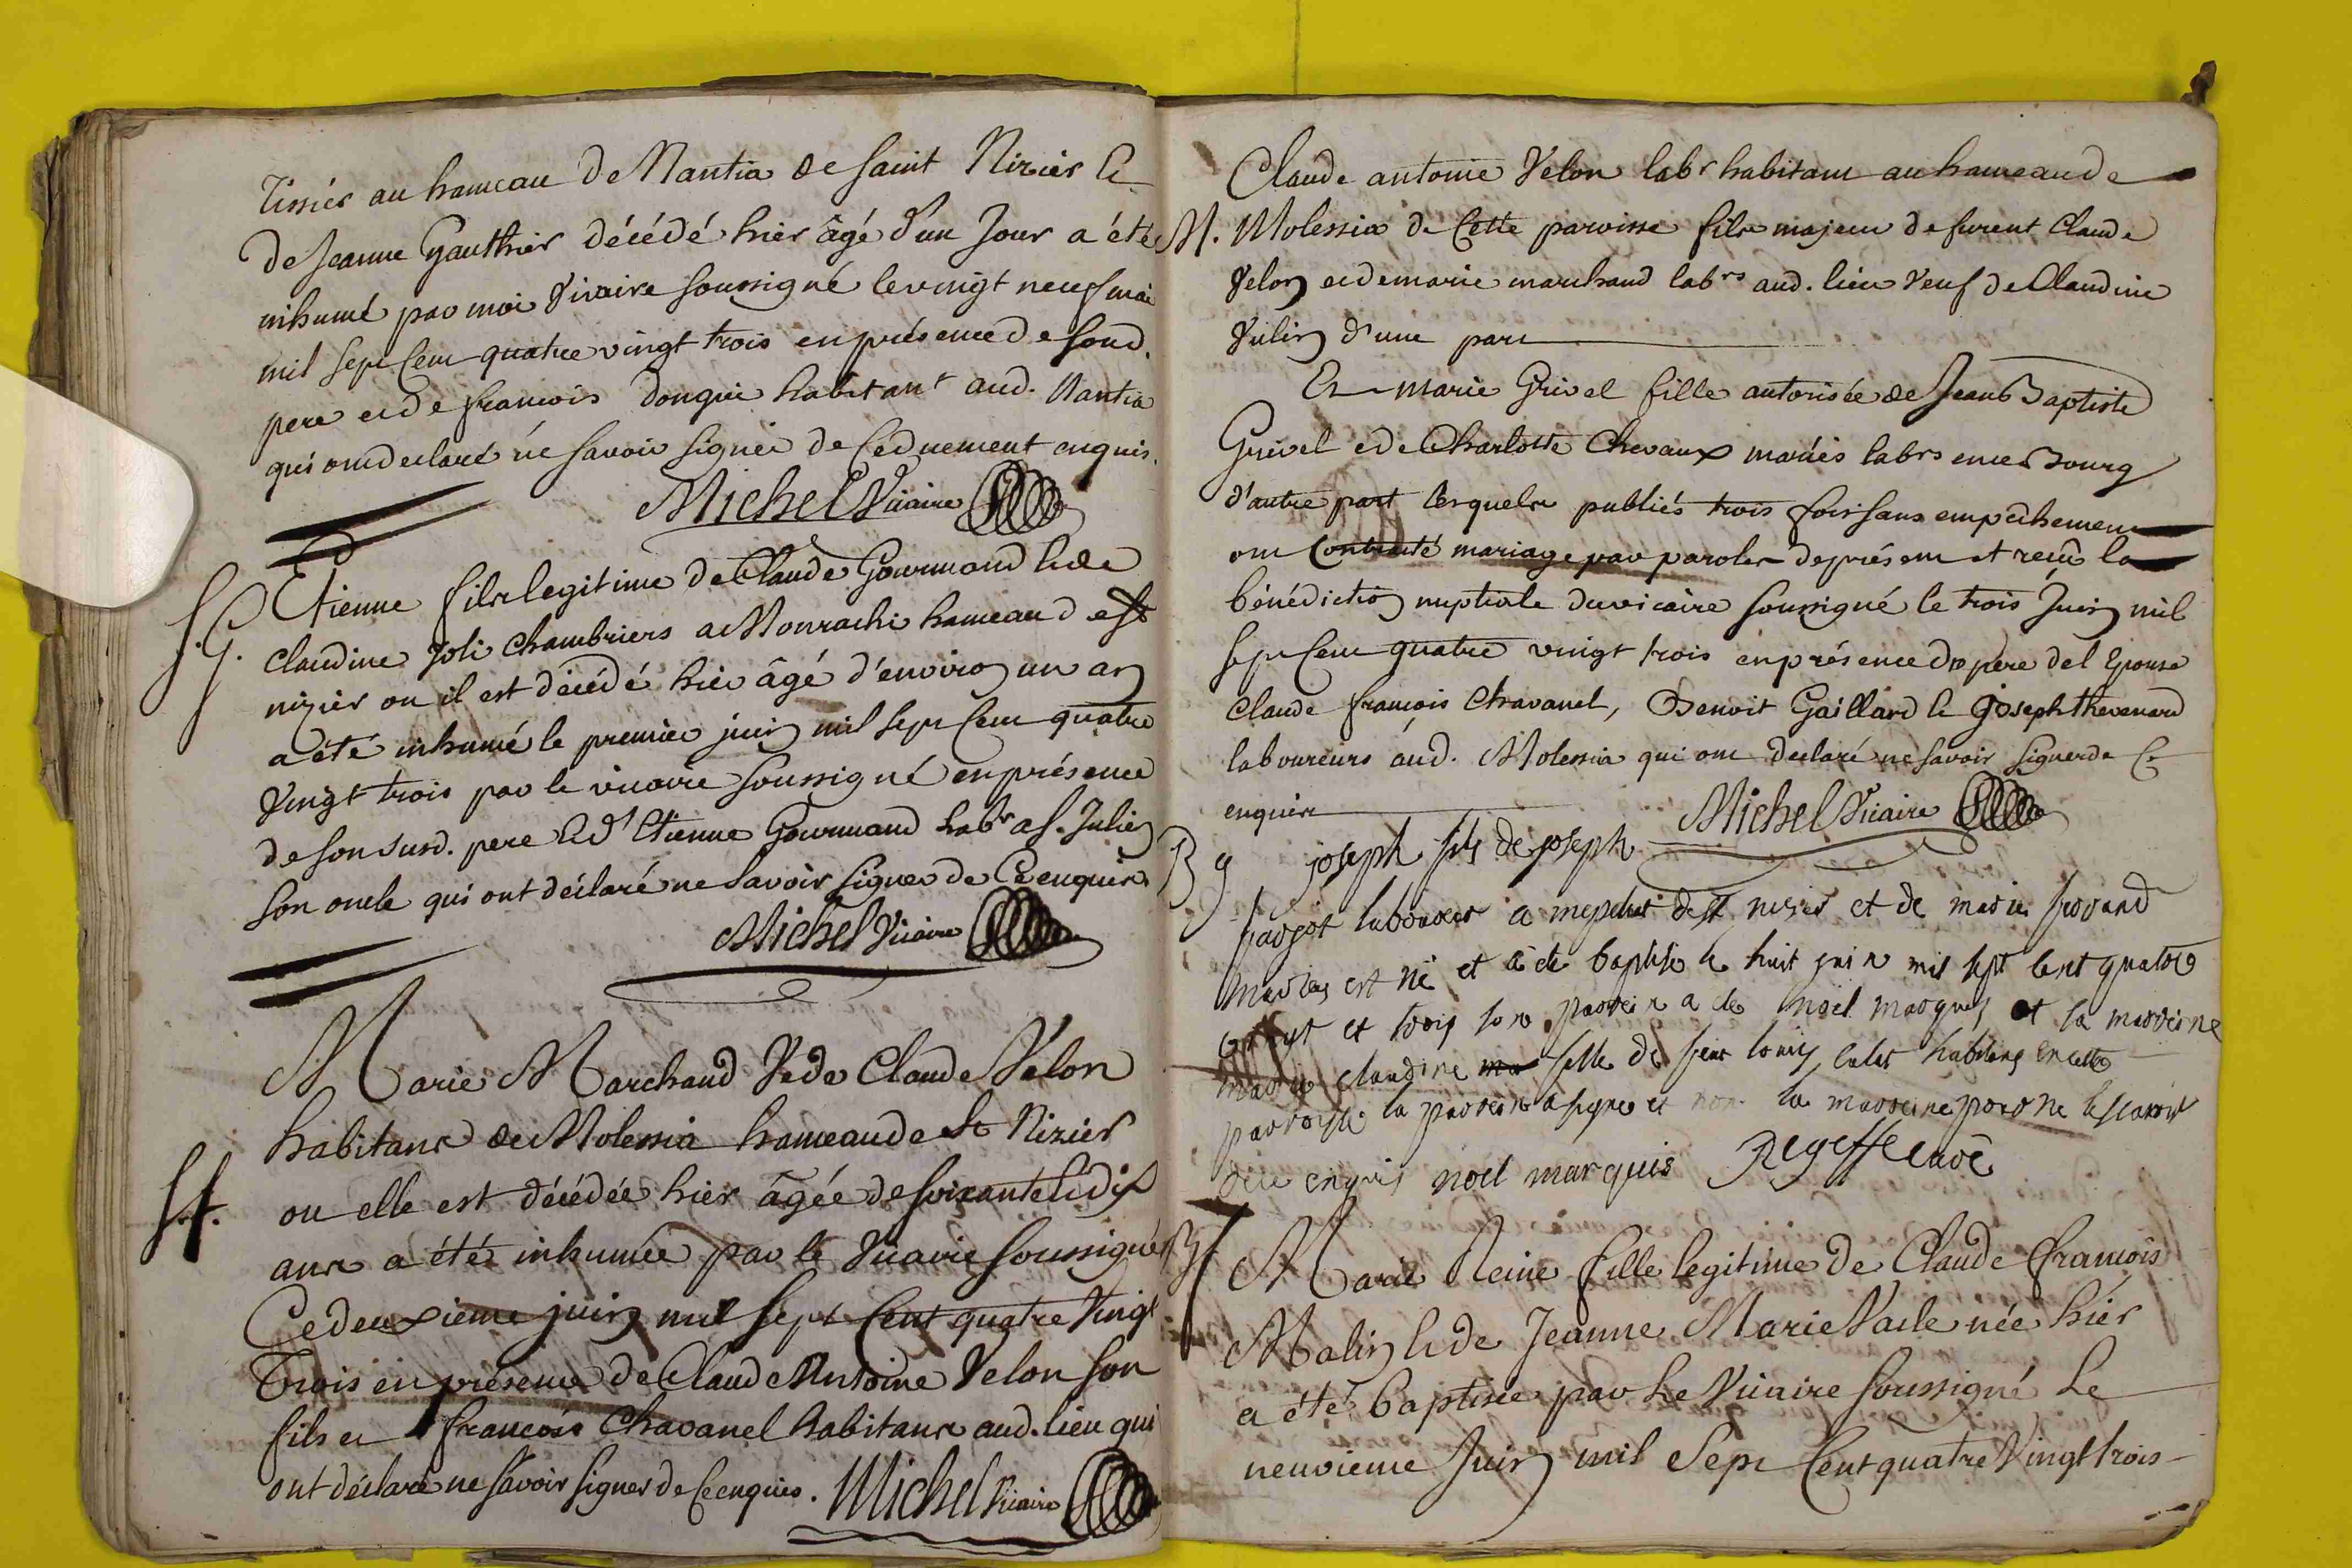 Tissier au hameau de Nantia de saint Nizier Et
de Jeanne Gauthier décédé hier âgé d'un Jour a été
inhumé par moi Vicaire soussigné le vingt neuf mai
mil sept Cent quatre vingt trois en présence de sond.
pere et de françois Dongué habitant aud. Nantia
qui ont declaré ne savoir signer de Ce duement enquis.
Michel Vicaire
S.G.
Etienne fils legitime de Claude Gourmand et de
Claudine Joli Chambriers a Monrachi hameau de st
nizier ou il est décédé hier âgé d'environ un an
a été inhumé le premier juin mil sept Cent quatre
Vingt trois par le vicaire soussigné en présence
de son susd. pere Et d'Etienne Gourmand habt a s. Julien
son oncle qui ont déclaré ne savoir signer de Ce enquis
Michel Vicaire
Marie Marchand Ve de Claude Velon
habitans de Molessia hameau de St Nizier
S.f. ou elle est décédée hier âgée de soixante et dix
ans a étée inhumée par le Vicaire soussigné
Ce deuxieme juin mil sept Cent quatre Vingt
Trois en présence de Claude Antoine Velon son
fils et françois Chavanel habitans aud. lieu qui
ont déclaré ne savoir signer de Ce enquis. Michel Vicaire
Claude antoine Velon labr habitant au hameau de
M. Molessia de Cette paroisse fils majeur de furent Claude
Velon et de marie marchand labrs aud. lieu Veuf de Claudine
Vulin d'une part
Et marie Grivel fille autorisée de Jean Baptiste
Grivel et de Charlotte Chevaux mariés labrs en ce Bourg
d'autre part lesquels publiés trois fois sans empêchement
ont Contracté mariage par paroles de présent et reçu la
bénédiction nuptiale du vicaire soussigné le trois Juin mil
sept Cent quatre vingt trois en présence du pere de l'Epouse
Claude françois Chavanel, Benoit Gaillard et Joseph thevenard
laboureurs aud. Molessia qui ont declaré ne savoir signer de Ce
enquis
Michel Vicaire
B g joseph fils de joseph
laboureur a de st nizier et de marie
mariés est né et a été baptisé le huit juin mil sept cent quatre
vingt et trois son parrein a été noël marquis et la marreine
marie claudine fille de feut louis habitans en cette
paroisse le parrein a signé et non la marreine pour ne le scavoir
de ce enquis noel marquis
Bf
Marie Reine fille legitime de Claude françois
Malin et de Jeanne Marie née hier
a été baptisée par Le Vicaire soussigné Le
neuvieme Juin mil Sept Cent quatre Vingt trois